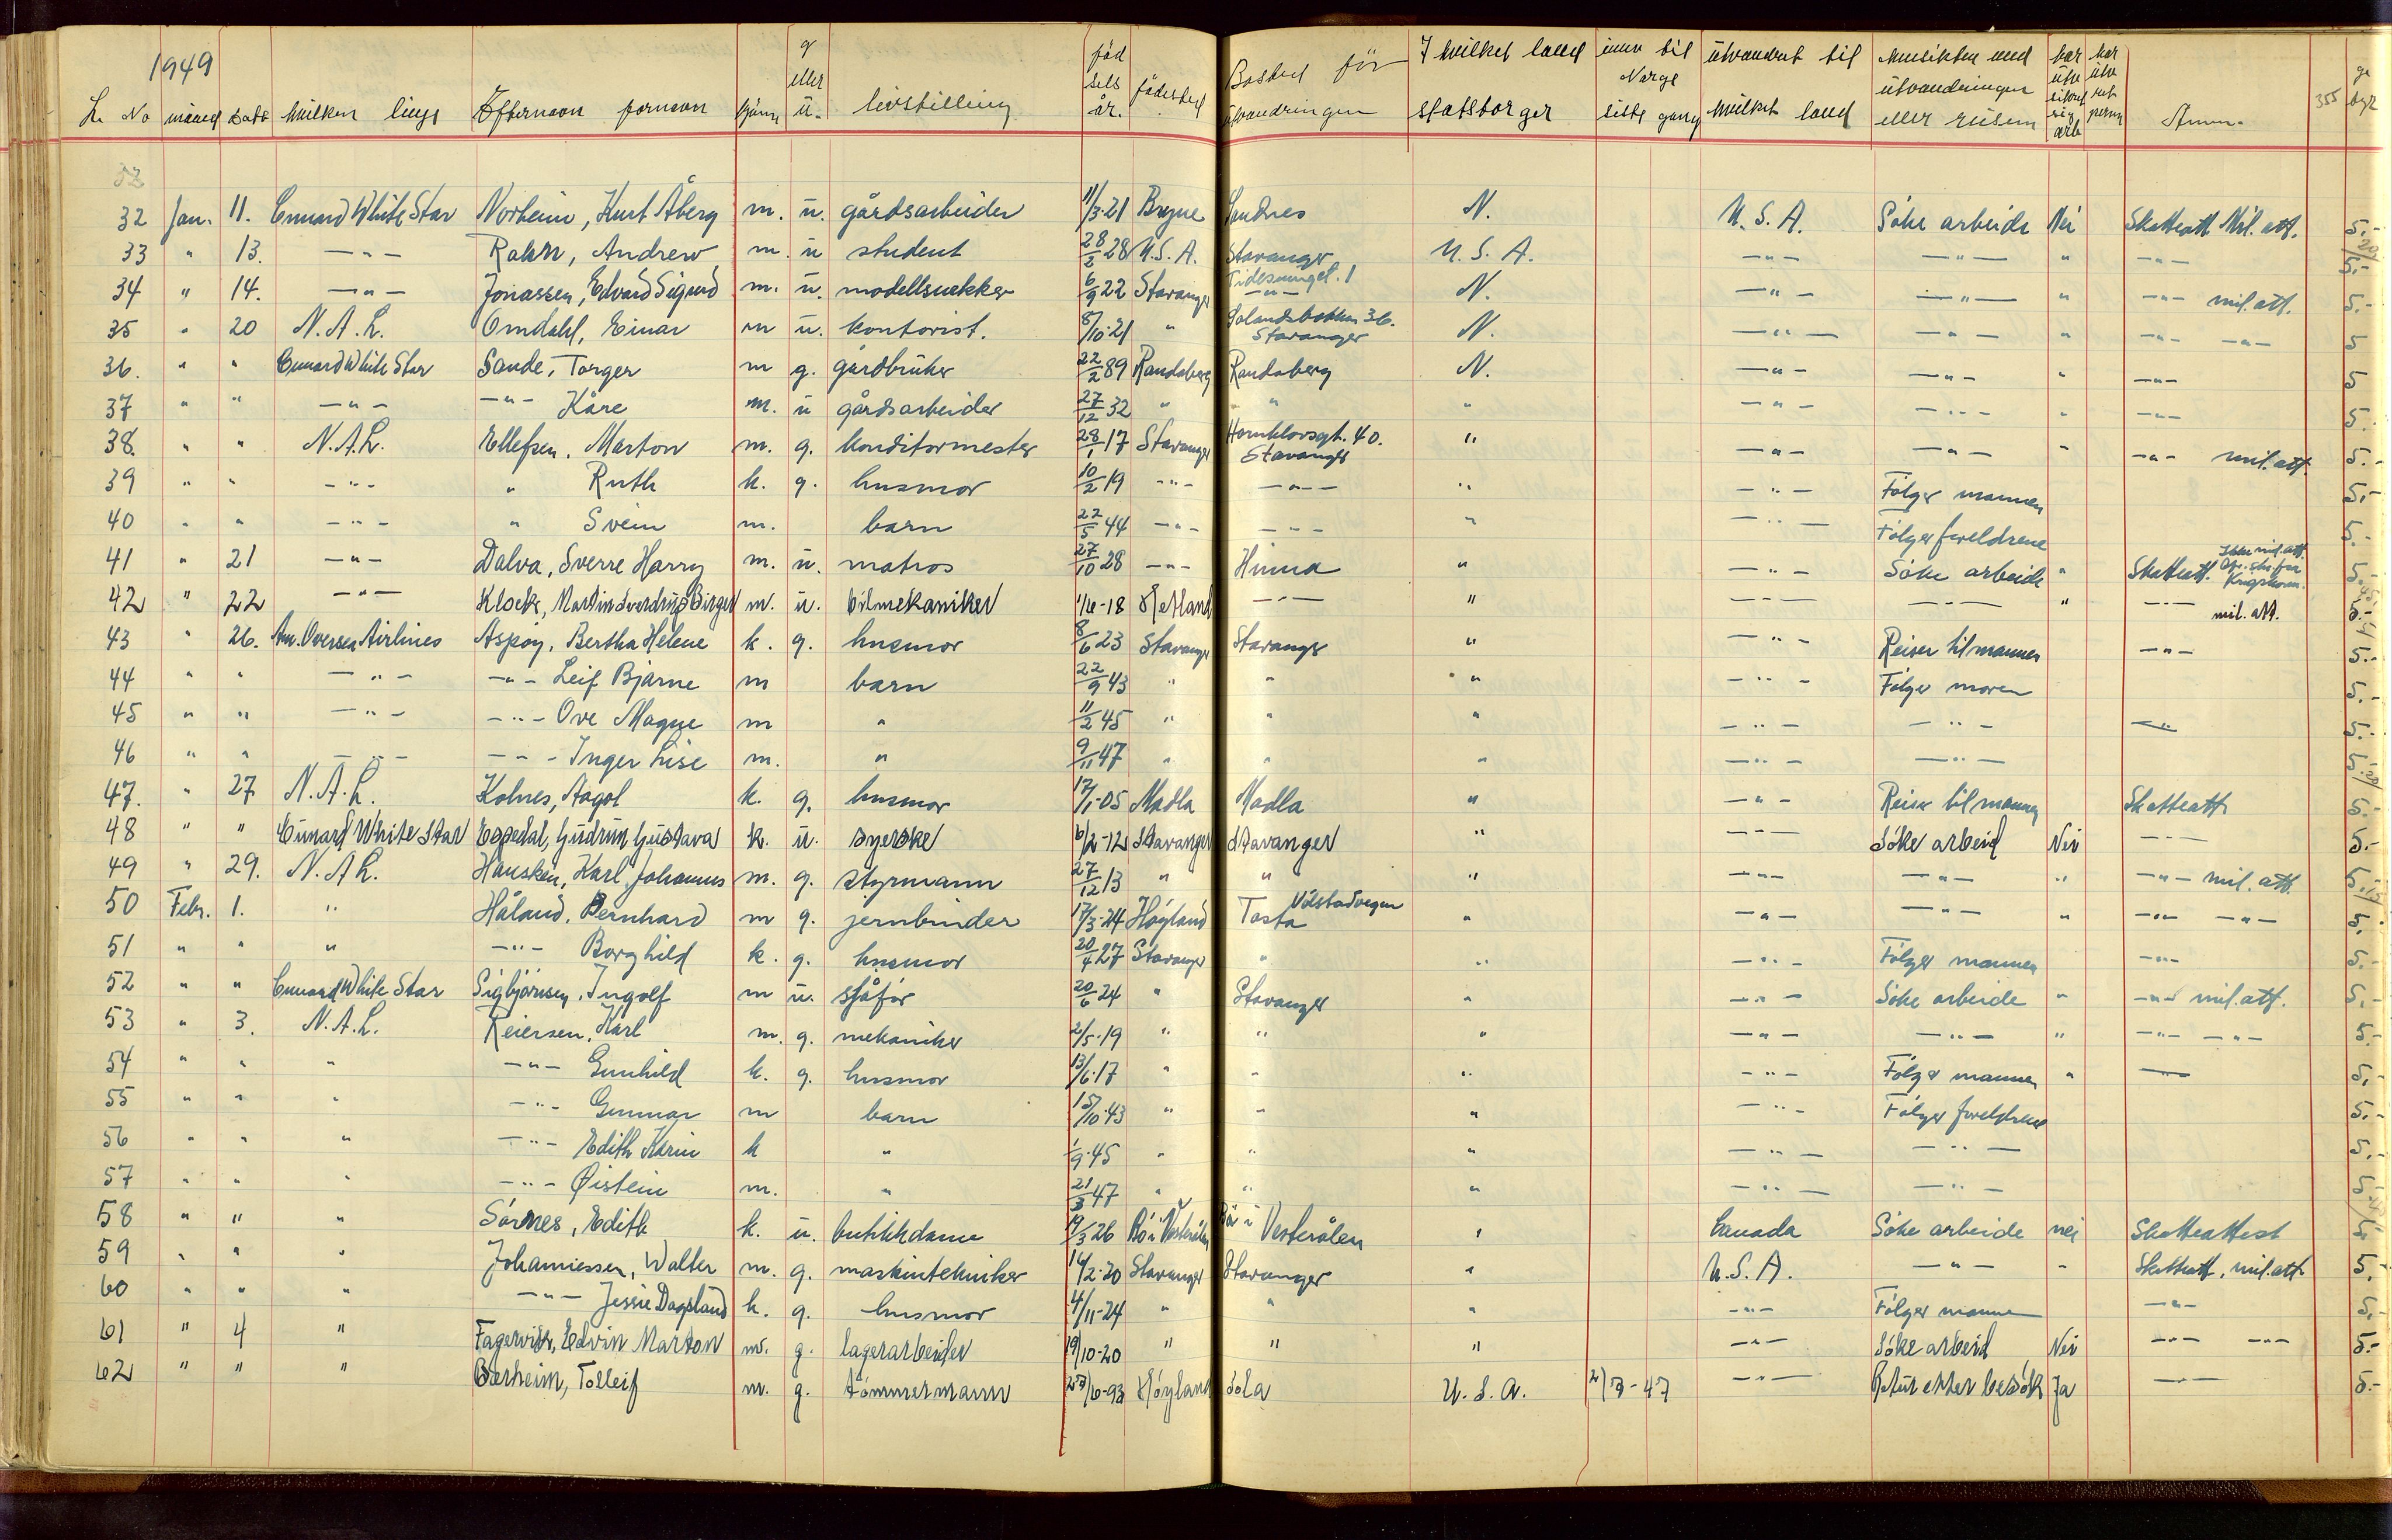 1949
L. No måned dato hvilken linje Efternavn fornavn kjønn g eller u. livstilling fødselsår. fødested Bosted før utvandringen I hvilket land statsborger innv til Norge siste gang utvandret til hvilket land Hensikten med utvandringen eller reisen har utv sikret sig arb har utv ret perm Anm. 355 ge byr
32 Jan. 11. Cunard White Star Norheim, Kurt Åberg m. u. gårdsarbeider 11/3-21 Bryne Sandnes N. U.S.A. Søke arbeide Nei Skatteatt Mil. att. 5.-
33 " 13. -"- Rahn, Andrew m. u student 28/2 28 U.S.A. Stavanger U.S.A. -"- -"- " -"- 5.-
34 " 14. -"- Jonassen, Edvard Sigurd m. u. modellsnekker 6/9 22 Stavanger Tidesmuget. 1 -"- N. -"- -"- " -"- mil. att. 5.-
35 " 20 N.A.L. Omdahl, Einar m u. kontorist. 8/10-21 " Solandsbakken 36. Stavanger N. -"- -"- " -"- -"- 5
36. " " Cunard White Star Sande, Torger m g. gårdbruker 22/2 89 Randaberg Randaberg N. -"- -"- " -"- 5
37 " " -"- -"- Kåre m. u gårdsarbeider 27/12 32 " " " -"- -"- " -"- 5.
38. " " N.A.L. Ellefsen, Marton m. g. konditormester 28/1 17 Stavanger Hornklovsgt. 40. Stavanger " -"- -"- " -"- mil. att. 5.-
39 " " -"- " Ruth k. g. husmor 10/2 19 -"- -"- " -"- Følger mannen 5.-
40 " " -"- " Svein m. barn 22/5 44 -"- -"- " -"- Følger foreldrene 5.-
41 " 21 -"- Dalva, Sverre Harry m. u. matros 27/10 28 -"- Hinna " -"- Søke arbeide " Skatteatt. Ikke mil. att. 5.-
42 " 22 -"- Klock, Martin Sverdrup Birger m. u. bilmekaniker 1/6-18 Hetland -"- " -"- -"- " -"- mil. att. 5.-
43 " 26. Am. Oversea Airlines Aspøy, Bertha Helene k. g. husmor 8/6 23 Stavanger Stavanger " -"- Reiser til mannen -"- 5.-
44 " " -"- -"- Leif Bjarne m barn 22/9 43 " " " -"- Følger moren 5.-
45 " " -"- -"- Ove Magne m " 11/2 45 " " " -"- -"- -"- 5.-
46 " " -"- -"- Inger Lise m. " 9/11 47 " " " -"- -"- 5.-
47. " 27 N.A.L. Kolnes, Aagot k. g. husmor 17/1-05 Madla Madla " -"- Reise til mannen Skatteatt 5.-
48 " " Cunard White Star Espedal, Gudrun Gustava k. u. syerske 6/2-12 Stavanger Stavanger " -"- Søke arbeid Nei -"- 5.-
49 " 29. N.A.L. Hausken, Karl Johannes m. g. styrmann 27/12 13 " " " -"- -"- " -"- mil. att. 5.-
50 Febr. 1. " Håland, Bernhard m g. jernbinder 17/3-24 Høyland Tasta Volstadvegen " -"- -"- " -"- -"- 5.
51 " " " -"- Borghild k. g. husmor 20/4 27 Stavanger " " -"- Følger mannen -"- 5.-
52 " " Cunard White Star Sigbjørnsen, Ingolf m u. sjåfør 20/6 24 " Stavanger " -"- Søke arbeide " -"- mil. att. 5.-
53 " 3. N.A.L. Reiersen, Karl m. g. mekaniker 2/5-19 " " " -"- -"- " -"- -"- 5.-
54 " " " -"- Gunhild k. g. husmor 13/6-17 " " " -"- Følger mannen " -"- 5.-
55 " " " -"- Gunnar m barn 15/10-43 " " " -"- Følger foreldrene 5.-
56 " " " -"- Edith Karin k " 1/9-45 " " " -"- -"- 5.-
57 " " " -"- Øistein m. " 21/3 47 " " " -"- -"- 5.-
58 " " " Sørnes, Edith k. u. butikkdame 19/3 26 Bø i Vesterålen Bø i Vesterålen " Canada Søke arbeide nei Skatteattest 5.
59 " " " Johannessen, Walter m. g. maskintekniker 14/2-20 Stavanger Stavanger " U.S.A. -"- " Skatteatt, mil. att 5.-
60 " " " -"- Jessie Dagsland k. g. husmor 4/11-24 " " " -"- Følger mannen -"- 5.-
61 " 4 " Fagervik, Edvin Marton m. g. lagerarbeider 19/10-20 " " " -"- Søke arbeid Nei -"- -"- 5.-
62 " " " Bærheim, Tolleif m. g. tømmermann 27/6-93 Høyland Sola U.S.A. 2/7-47 -"- Retur etter besøk Ja -"- 5.-